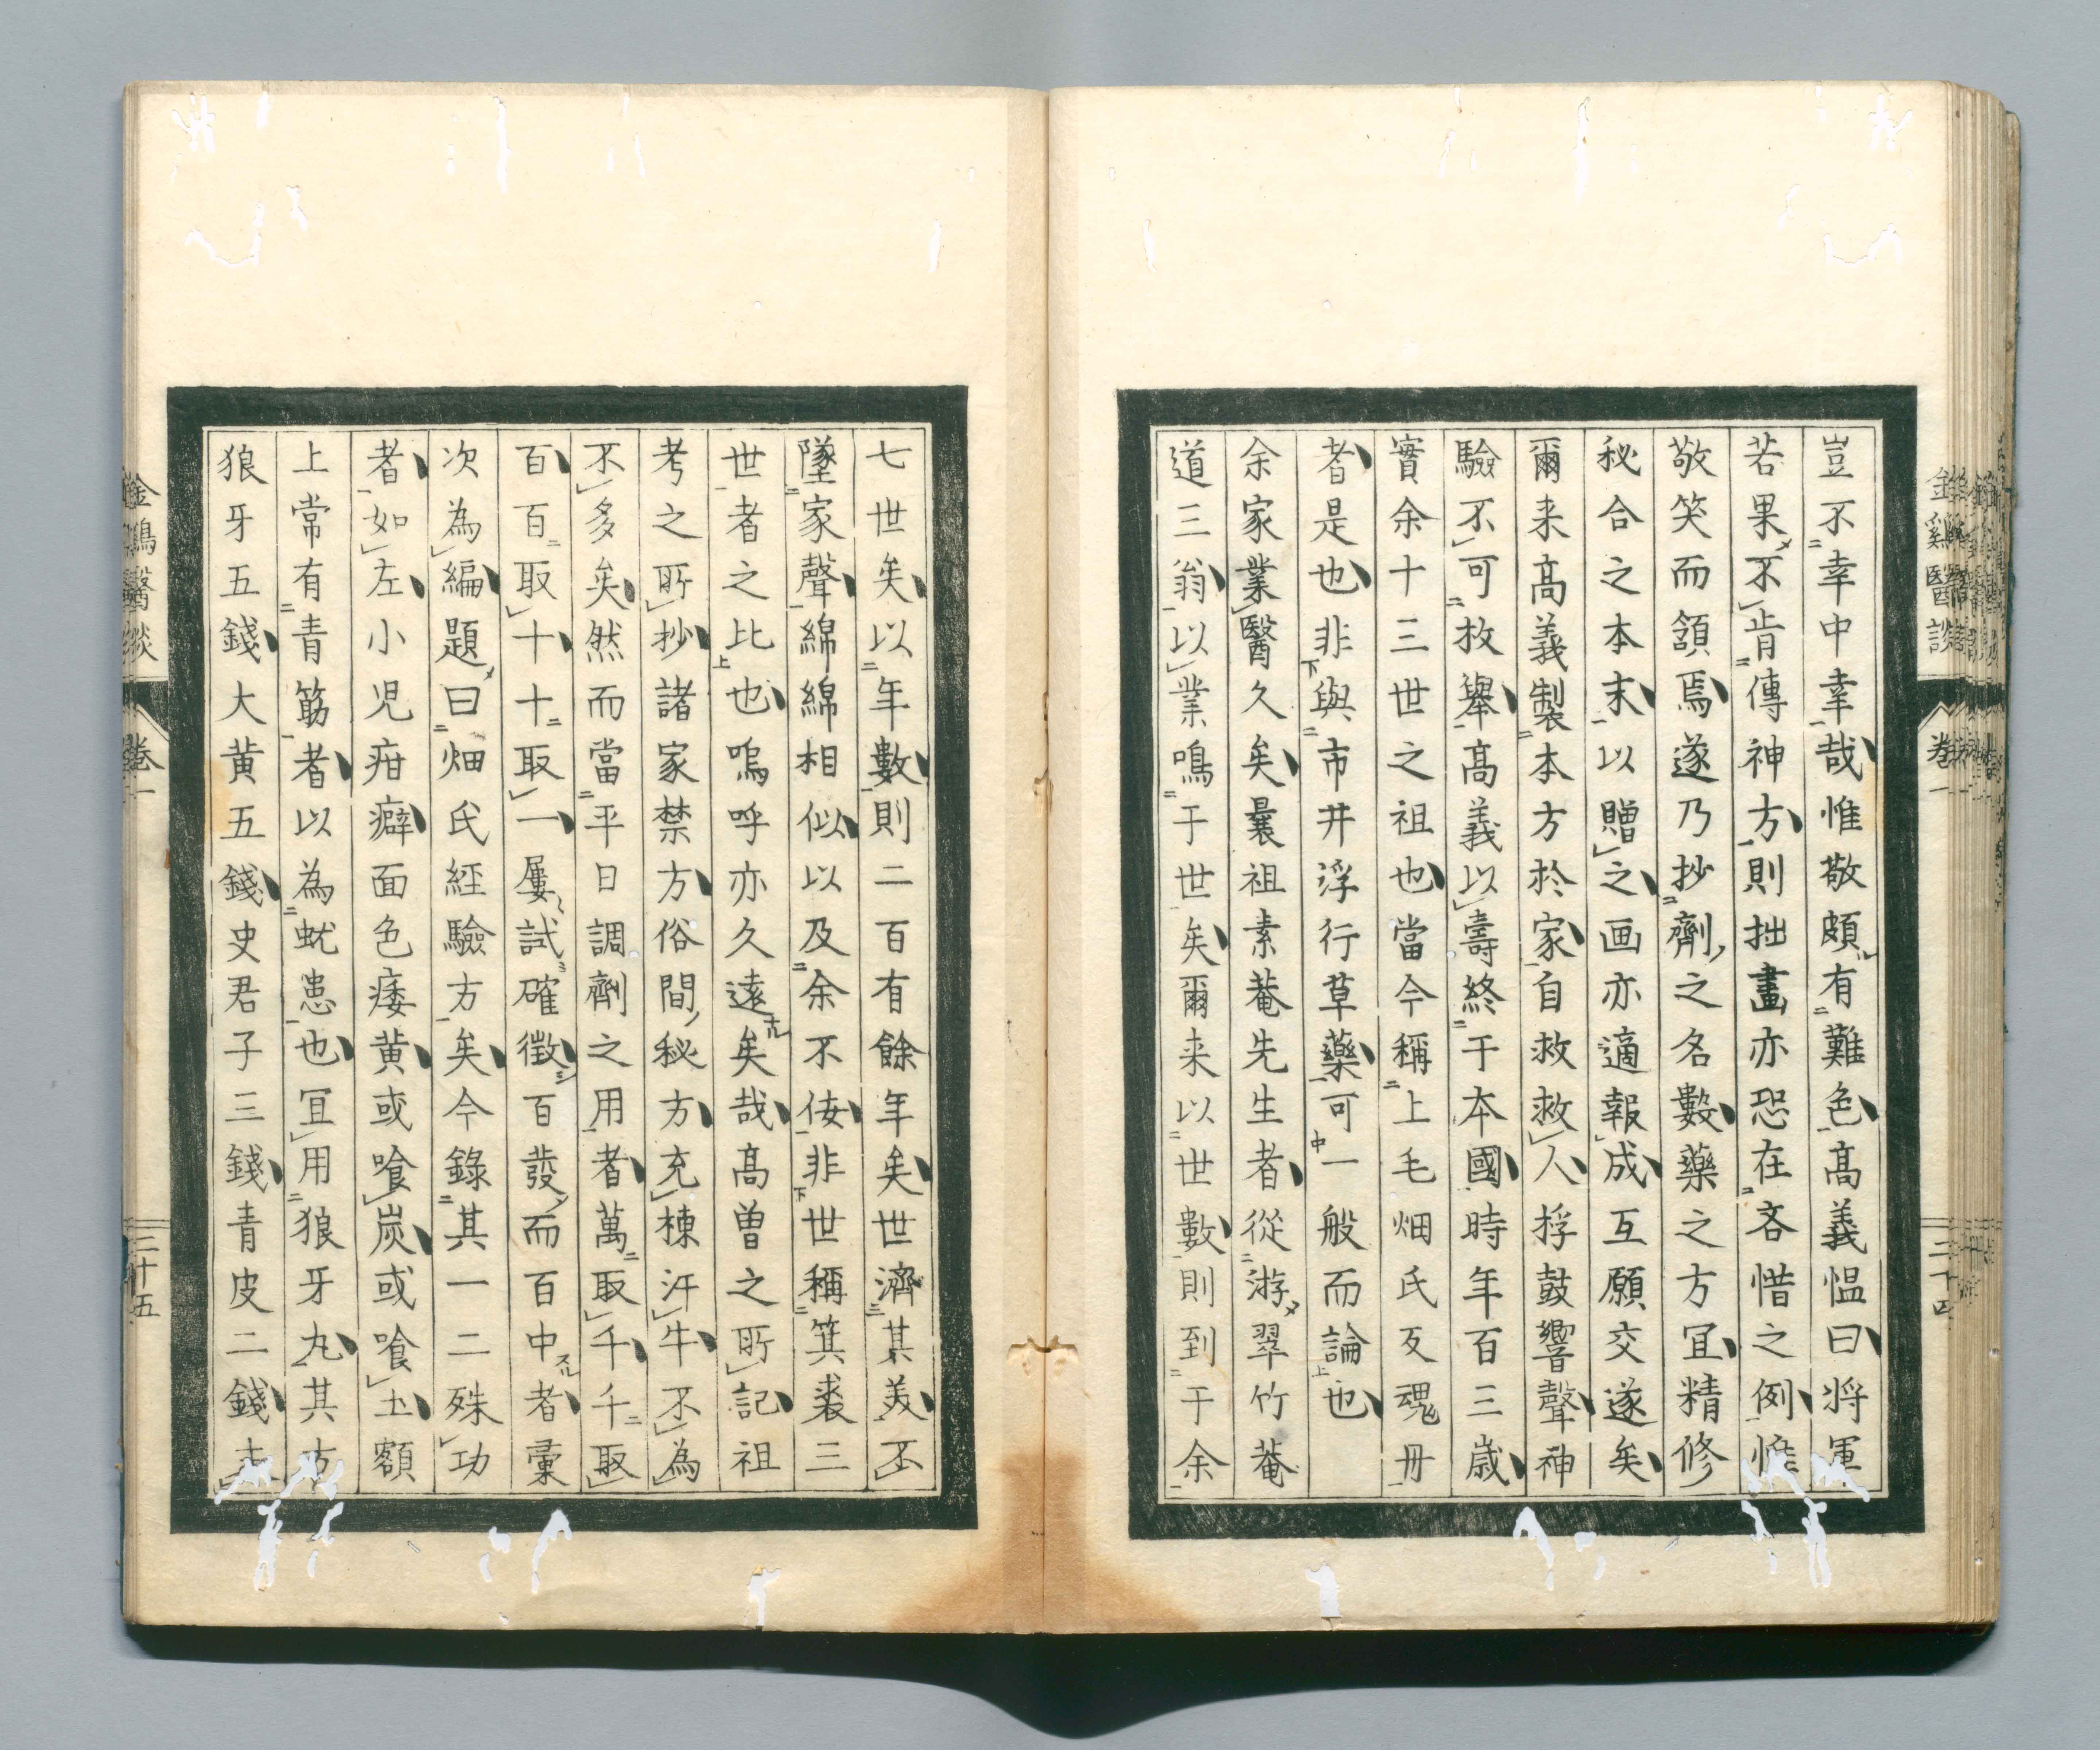 豈不幸中幸哉惟敬頗有難色高義慍曰将軍
若果不肯傳神方則拙畫亦恐在吝惜之例惟
敬笑而頷焉遂乃抄劑之名數藥之方宜精修
秘合之本末以贈之画亦適報成互願交遂矣
爾来高義製本方於家自救救人桴鼓響聲神
驗不可枚舉高義以壽終于本國時年百三歲
實余十三世之祖也當今稱上毛畑氏反魂丹
者是也非與市井浮行草藥可一般而論也
余家業醫久矣曩祖素菴先生者從游翠竹菴
道三翁以業鳴于世矣爾来以世數則到于余
金雞醫談 卷一 三十四
七世矣以年數則二百有餘年矣世濟其美不
墜家聲綿綿相似以及余不佞非世稱箕裘三
世者之比也嗚呼亦久遠矣哉高曽之所記祖
考之所抄諸家禁方俗間秘方充棟汗牛不為
不多矣然而當平日調劑之用者萬取千千取
百百取十十取一屢試確徵百發而百中者彙
次為編題曰畑氏經驗方矣今錄其一二殊功
者如左小児疳癖面色痿黄或喰炭或喰土額
上常有青筋者以為虬患也冝用狼牙丸其方
狼牙五錢大黄五錢史君子三錢青皮二錢
金鷄醫談 卷一 三十五